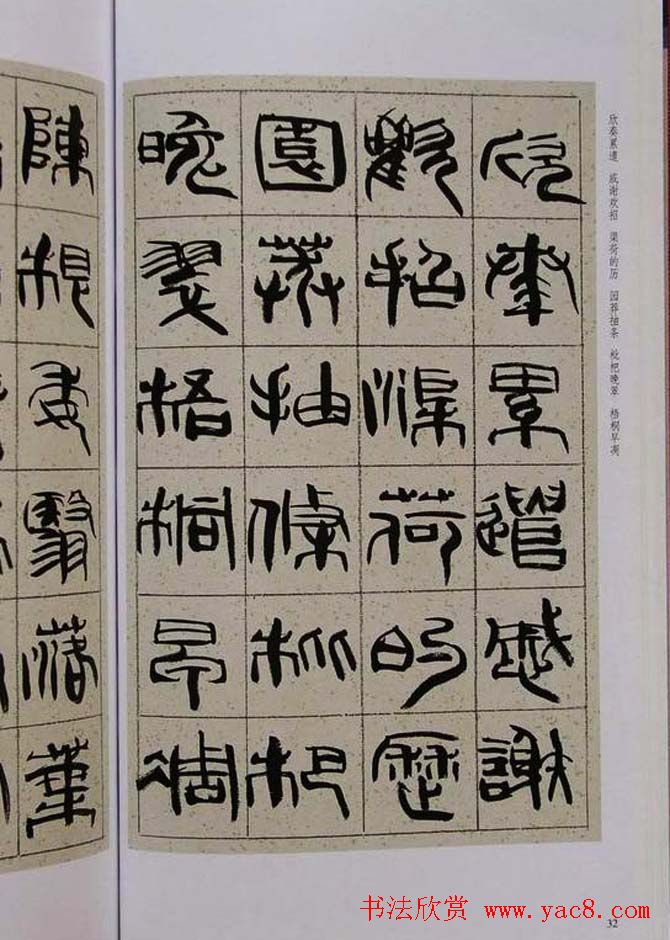 欣奏累遣 戚谢欢招 渠荷的历 园莽抽条 枇杷晚翠 梧桐早凋
欣奏累遣慼謝
歡招渠荷的歷
園莽抽條枇杷
晚翠梧桐早凋
陳根委翳落葉
32
书法欣赏 www.yac8.com